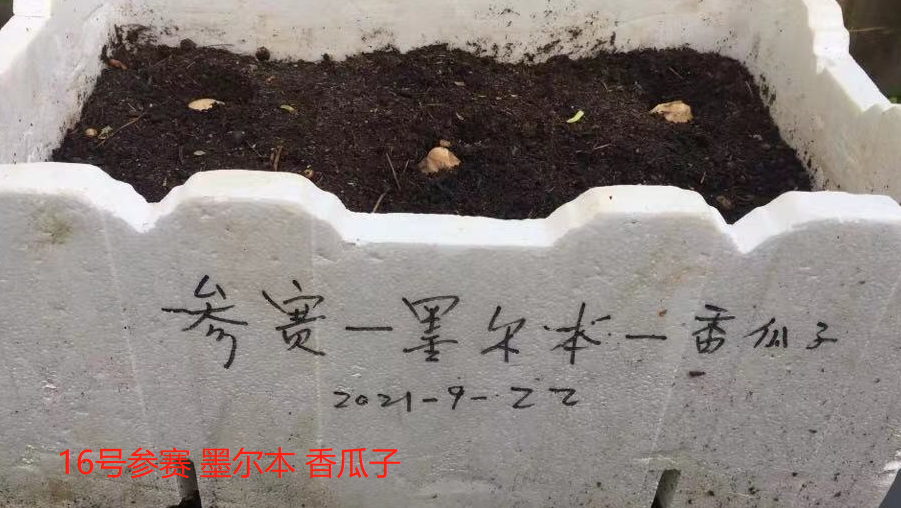 参赛—墨尔本—香瓜子
2021-9-22
16号参赛 墨尔本 香瓜子